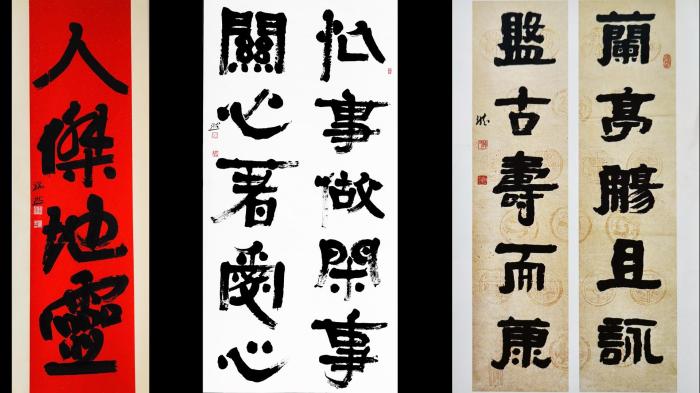 人傑地靈
忙事做閑事
關心著愛心
蘭亭觴且詠
盤古壽而康